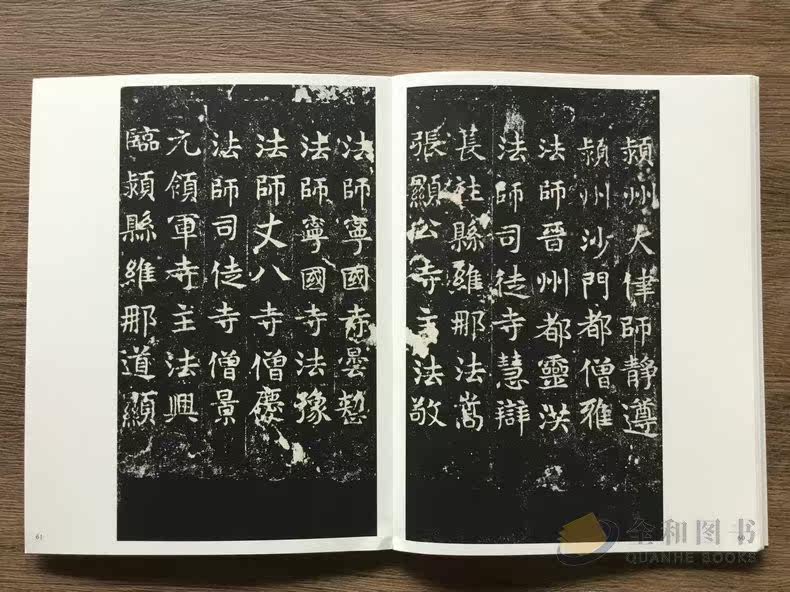 潁州大律師靜遵
潁州沙門都僧雅
法師晉州都靈
法師司徒寺慧辯
長社縣維那法嵩
張顯公寺主法敬
法師寧國寺曇
法師寧國寺法豫
法師丈八寺僧慶
法師司徒寺僧景
元領軍寺主法興
臨潁縣維那道顯
61
全和图书
QUANHE BOOKS